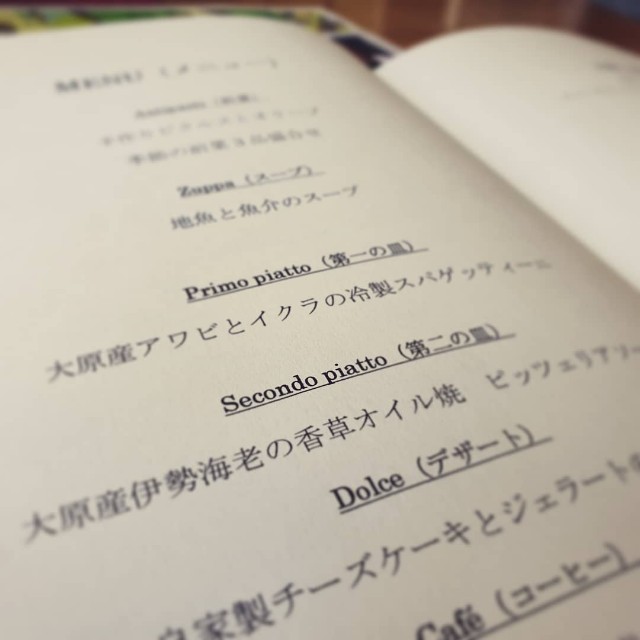 MENU (メニュー)
Antipasto (前菜)
季節の前菜3品盛合せ
Zuppa (スープ)
地魚と魚介のスープ
Primo piatto (第一の皿)
大原産アワビとイクラの冷製スパゲッティーニ
Secondo piatto (第二の皿)
大原産伊勢海老の香草オイル焼 ピッツェリアソー
Dolce (デザート)
自家製チーズケーキとジェラート
Café (コーヒー)